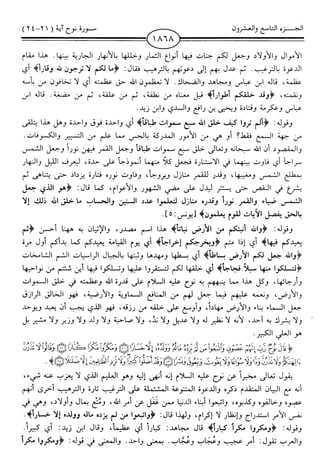 الجزء التاسع والعشرون
١٨٦٨
سورة نوح آية (٢١-٢٤)
الأموال والأولاد وجعل لكم جنات فيها أنواع الثمار وخللها بالأنهار الجارية بينها. هذا مقام
الدعوة بالترغيب. ثم عدل بهم إلى دعوتهم بالترهيب فقال: ﴿ما لكم لا ترجون لله وقاراً﴾ أي
عظمة، قاله ابن عباس ومجاهد والضحاك. لا تعظمون الله حق عظمته أي لا تخافون من بأسه
ونقمته، ﴿وقد خلقكم أطواراً﴾ قيل معناه من نطفة، ثم من علقة، ثم من مضغة. قاله ابن
عباس وعكرمة وقتادة ويحيى بن رافع والسدي وابن زيد.
وقوله: ﴿ألم تروا كيف خلق الله سبع سموات طباقاً﴾ أي واحدة فوق واحدة وهل هذا يتلقى
من جهة السمع فقط؟ أو هي من الأمور المدركة بالحس مما علم من التسيير والكسوفات.
والمقصود أن الله سبحانه وتعالى خلق سبع سموات طباقاً وجعل القمر فيهن نوراً وجعل الشمس
سراجاً أي فاوت بينهما في الاستنارة فجعل كلاً منهما أنموذجاً على حدة، ليعرف الليل والنهار
بمطلع الشمس ومغيبها، وقدر للقمر منازل وبروجاً، وفاوت نوره فتارة يزداد حتى يتناهى ثم
يشرع في النقص حتى يستتر ليدل على مضي الشهور والأعوام، كما قال: ﴿هو الذي جعل
الشمس ضياء والقمر نوراً وقدره منازل لتعلموا عدد السنين والحساب ما خلق الله ذلك إلا
بالحق يفصل الآيات لقوم يعلمون﴾ [يونس: ٥].
وقوله: ﴿والله أنبتكم من الأرض نباتاً﴾ هذا اسم مصدر، والإتيان به ههنا أحسن ﴿ثم
يعيدكم فيها﴾ أي إذا متم ﴿ويخرجكم إخراجاً﴾ أي يوم القيامة يعيدكم كما بدأكم أول مرة
﴿والله جعل لكم الأرض بساطاً﴾ أي بسطها ومهدها وثبتها بالجبال الراسيات الشم الشامخات
﴿لتسلكوا منها سبلاً فجاجاً﴾ أي خلقها لكم لتستقروا عليها وتسلكوا فيها أين شئتم من نواحيها
وأرجائها، وكل هذا مما ينبههم به نوح عليه السلام على قدرة الله وعظمته في خلق السموات
والأرض، ونعمه عليهم فيما جعل لهم من المنافع السماوية والأرضية، فهو الخالق الرازق
جعل السماء بناء والأرض مهاداً، وأوسع على خلقه من رزقه، فهو الذي يجب أن يعبد ويوحد
ولا يشرك به أحد، لأنه لا نظير له ولا عديل ولا ند، ولا صاحبة ولا ولد ولا وزير ولا مشير بل
هو العلي الكبير.
يقول تعالى مخبراً عن نوح عليه السلام إنه أنهى إليه وهو العليم الذي لا يعزب عنه شيء،
أنه مع البيان المتقدم ذكره والدعوة المتنوعة المشتملة على الترغيب تارة والترهيب أخرى أنهم
عصوه وخالفوه وكذبوه، واتبعوا أبناء الدنيا ممن غفل عن أمر الله، ومتع بمال وأولاد، وهي في
نفس الأمر استدراج وإنظار لا إكرام، ولهذا قال: ﴿واتبعوا من لم يزده ماله وولده إلا خساراً﴾.
وقوله: ﴿ومكروا مكراً كباراً﴾ قال مجاهد: كباراً أي عظيماً، وقال ابن زيد: أي كبيراً.
والعرب تقول: أمر عجيب وعُجَاب وعُجَّاب. بمعنى واحد. والمعنى في قوله: ﴿ومكروا مكراً